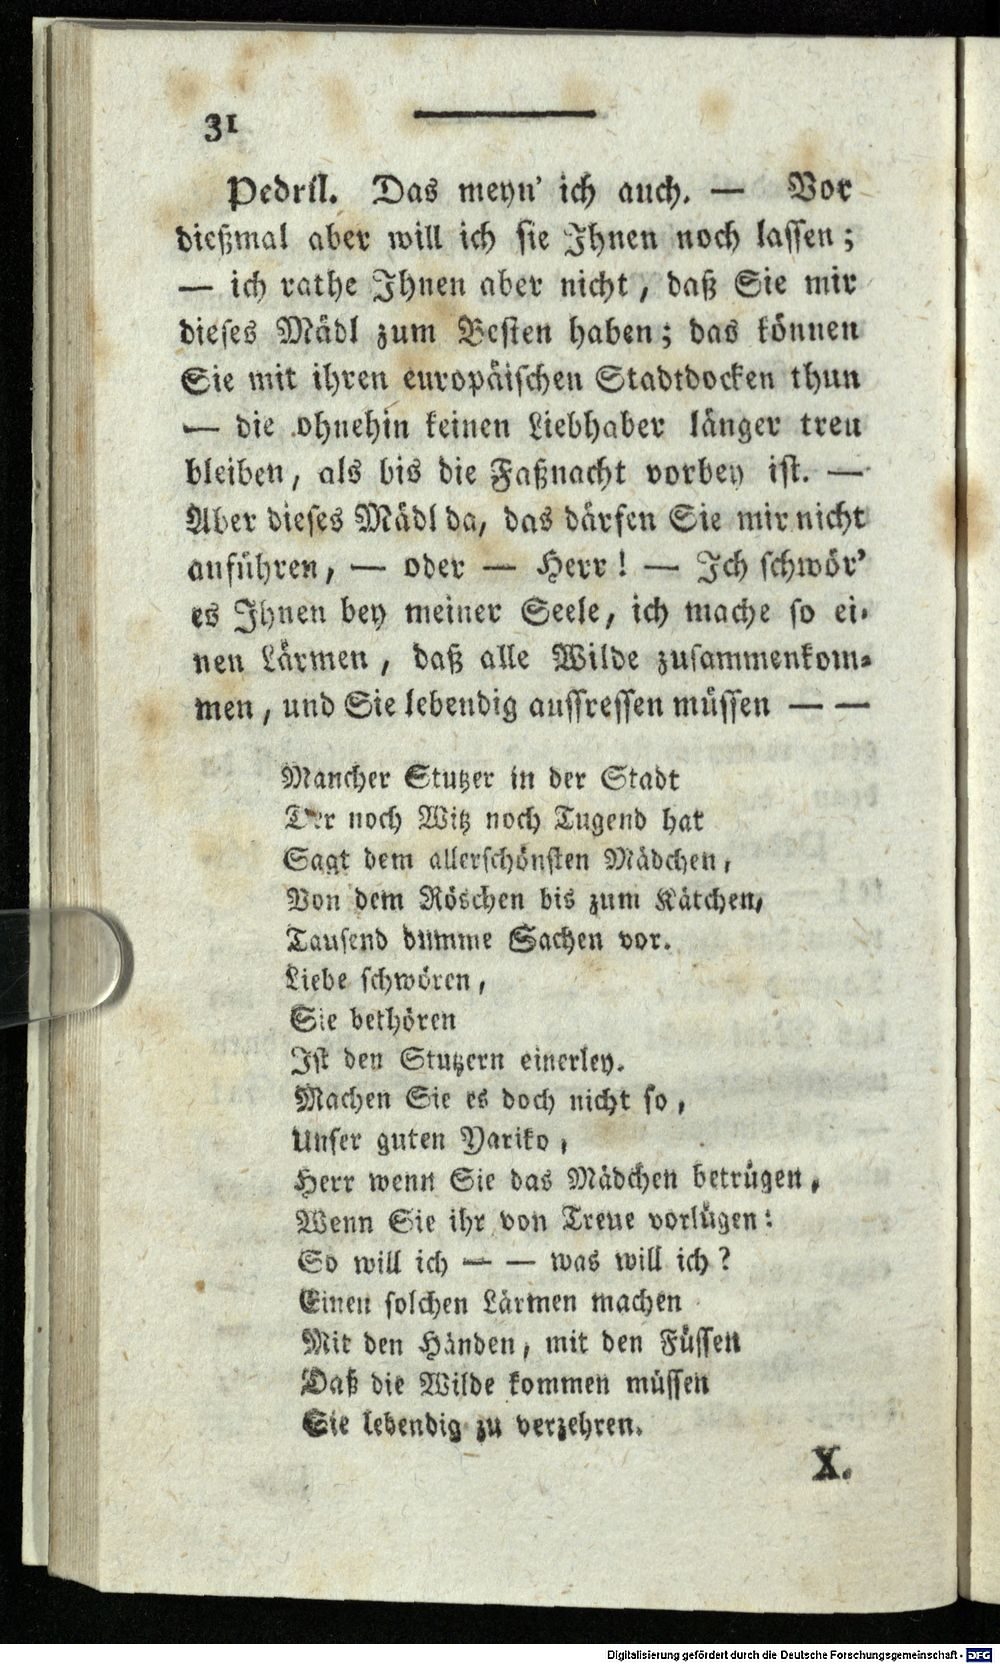 31
Pedril. Das meyn' ich auch. — Vor
dießmal aber will ich sie Ihnen noch lassen;
— ich rathe Ihnen aber nicht, daß Sie mir
dieses Mädl zum Besten haben; das können
Sie mit ihren europäischen Stadtdocken thun
— die ohnehin keinen Liebhaber länger treu
bleiben, als bis die Faßnacht vorbey ist. —
Aber dieses Mädl da, das därfen Sie mir nicht
anführen, — oder — Herr! — Ich schwör'
es Ihnen bey meiner Seele, ich mache so ei-
nen Lärmen, daß alle Wilde zusammenkom-
men, und Sie lebendig auffressen müssen — —
Mancher Stutzer in der Stadt
Der noch Witz noch Tugend hat
Sagt dem allerschönsten Mädchen,
Von dem Röschen bis zum Kätchen,
Tausend dumme Sachen vor.
Liebe schwören,
Sie bethören
Ist den Stutzern einerley.
Machen Sie es doch nicht so,
Unser guten Yariko,
Herr wenn Sie das Mädchen betrügen,
Wenn Sie ihr von Treue vorlügen:
So will ich — — was will ich?
Einen solchen Lärmen machen
Mit den Händen, mit den Füssen
Daß die Wilde kommen müssen
Sie lebendig zu verzehren.
X.
Digitalisierung gefördert durch die Deutsche Forschungsgemeinschaft - DFG